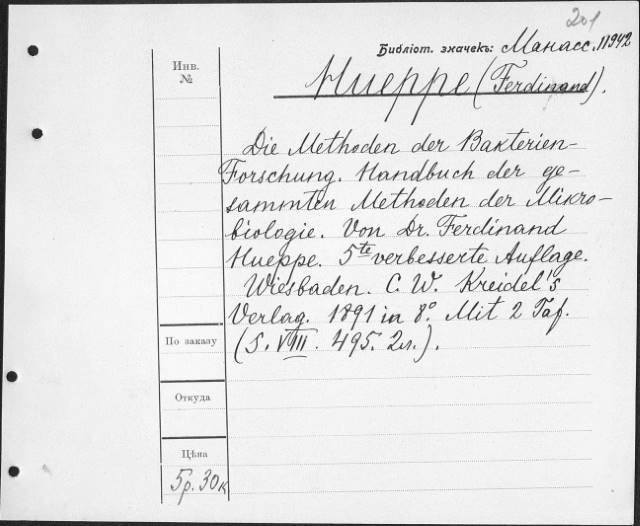 201
Библіот. значекъ: Манасс. 11942
Инв.
№
Hueppe (Ferdinand).
Die Methoden der Bakterien-
Forschung. Handbuch der ge-
sammten Methoden der Mikro-
biologie. Von Dr. Ferdinand
Hueppe. 5te verbesserte Auflage.
Wiesbaden. C. W. Kreidel's
Verlag. 1891 in 8º. Mit 2 Taf.
(S. VIII. 495. 2л.).
По заказу
Откуда
Цѣна
5р. 30к